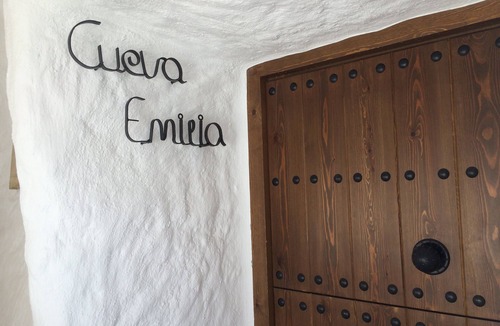 Cueva
Emilia